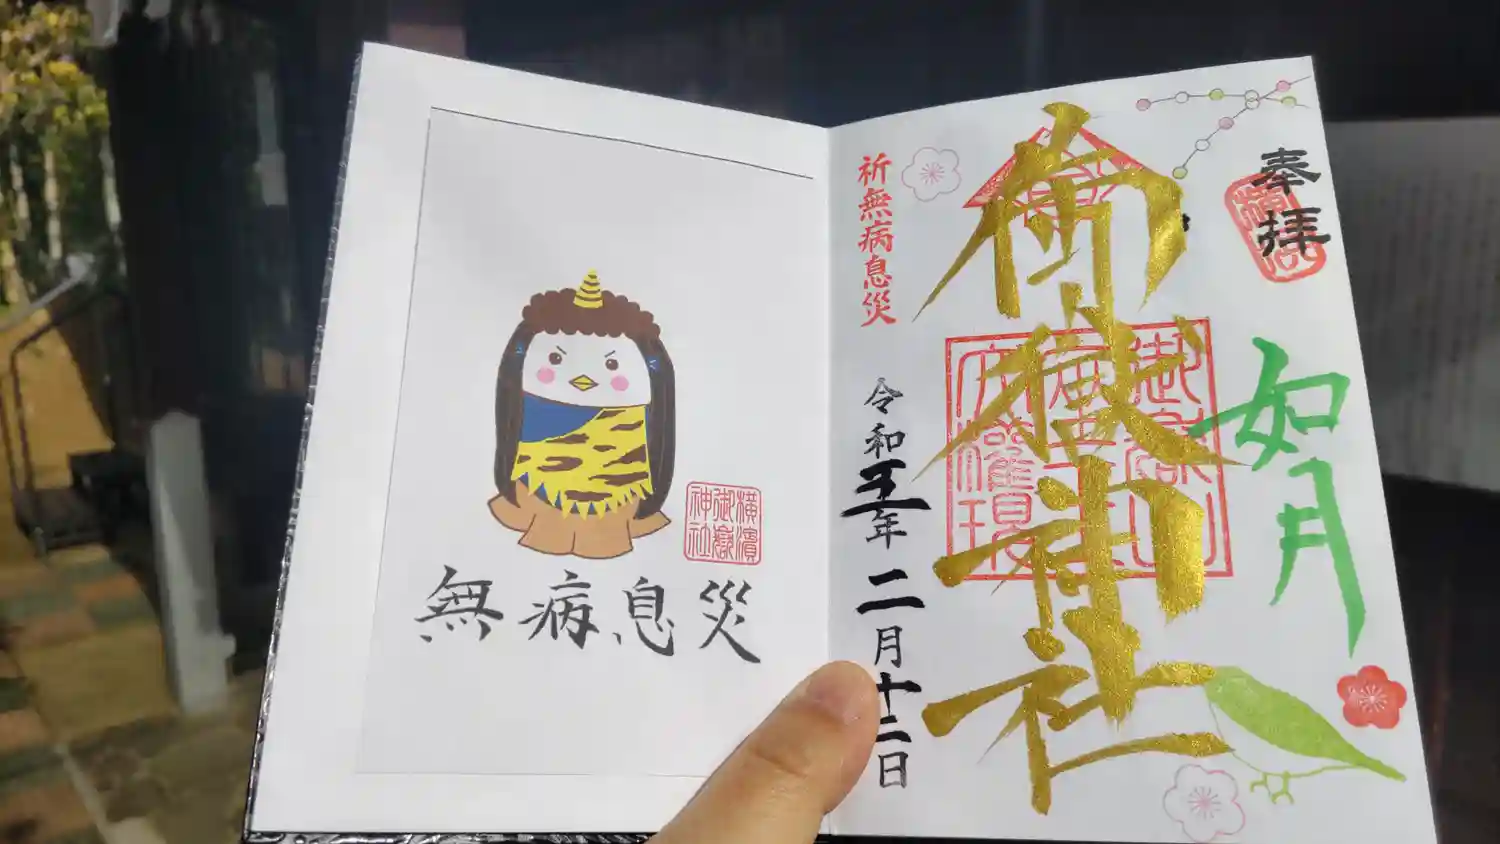 奉拝
如月
御嶽神社
祈無病息災
令和五年二月十二日
無病息災
横濱
御嶽
神社